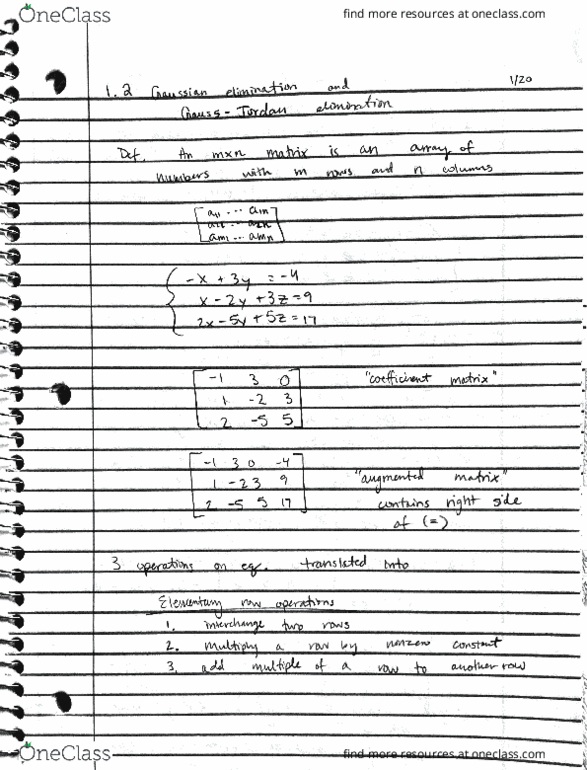 OneClass
find more resources at oneclass.com
1/20
1.2 Gaussian elimination and
Gauss-Jordan elimination
Def. An mxn matrix is an array of
numbers with m rows and n columns
a11 ... a1n
a21 ... a2n
am1 ... amn
-x + 3y = -4
x - 2y + 3z = 9
2x - 5y + 5z = 17
-1 3 0 "coefficient matrix"
1 -2 3
2 -5 5
-1 3 0 -4
1 -2 3 9 "augmented matrix"
2 -5 5 17 contains right side
of (=)
3 operations on eq. translated into
Elementary row operations
1. interchange two rows
2. multiply a row by nonzero constant
3. add multiple of a row to another row
OneClass
find more resources at oneclass.com